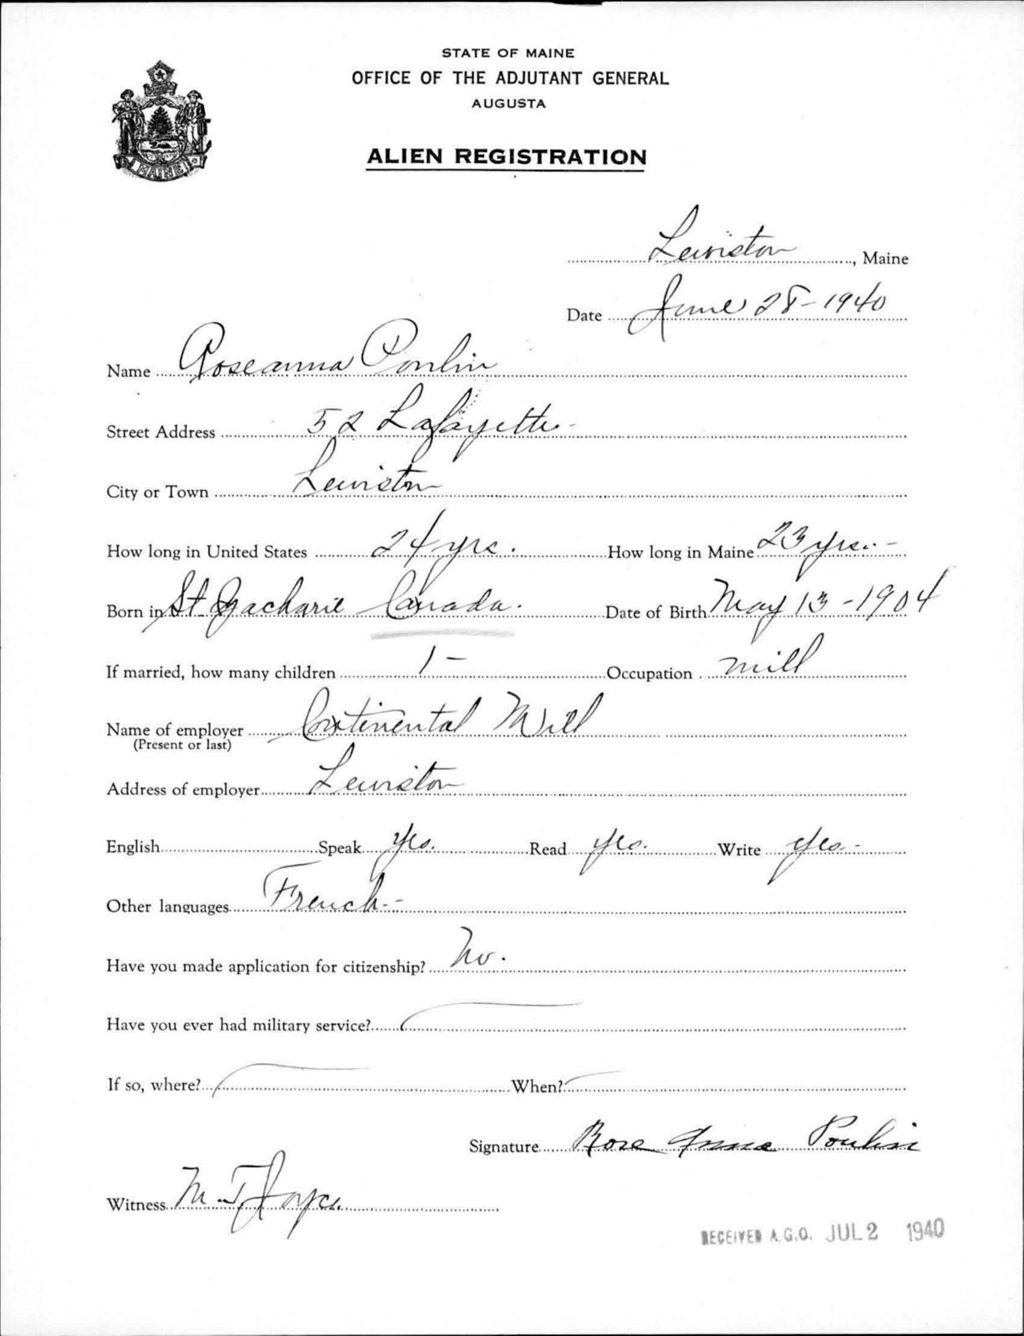 STATE OF MAINE
OFFICE OF THE ADJUTANT GENERAL
AUGUSTA
ALIEN REGISTRATION
MAINE
Lewiston, Maine
Date June 28-1940
Name Roseanna Poulin
Street Address 52 Lafayette-
City or Town Lewiston
How long in United States 24 yrs. How long in Maine 23 yrs.-
Born in St Zacharie Canada. Date of Birth May 13-1904
If married, how many children 1- Occupation mill
Name of employer Continental Mill
(Present or last)
Address of employer Lewiston
English Speak yes. Read yes. Write yes.-
Other languages French--
Have you made application for citizenship? No.
Have you ever had military service?
If so, where? When?
Signature Rose Anna Poulin
Witness M. J. Joyce
RECEIVED A.G.O. JUL 2 1940